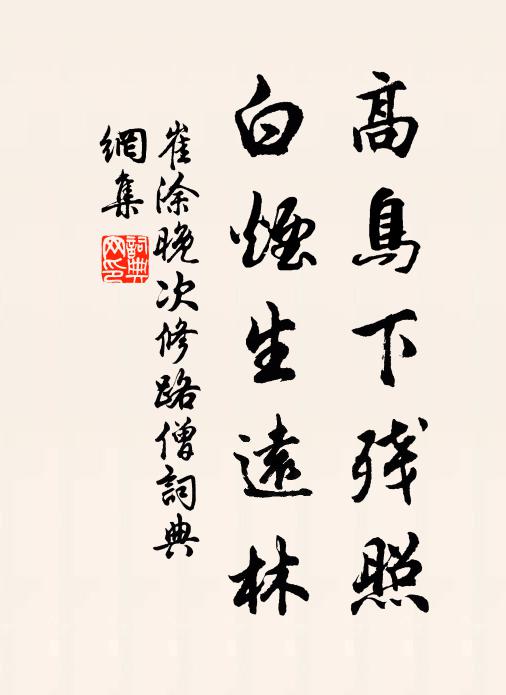 高鳥下残照
白煙生遠林
崔涂晚次修路僧詞典
網集
詞典網印